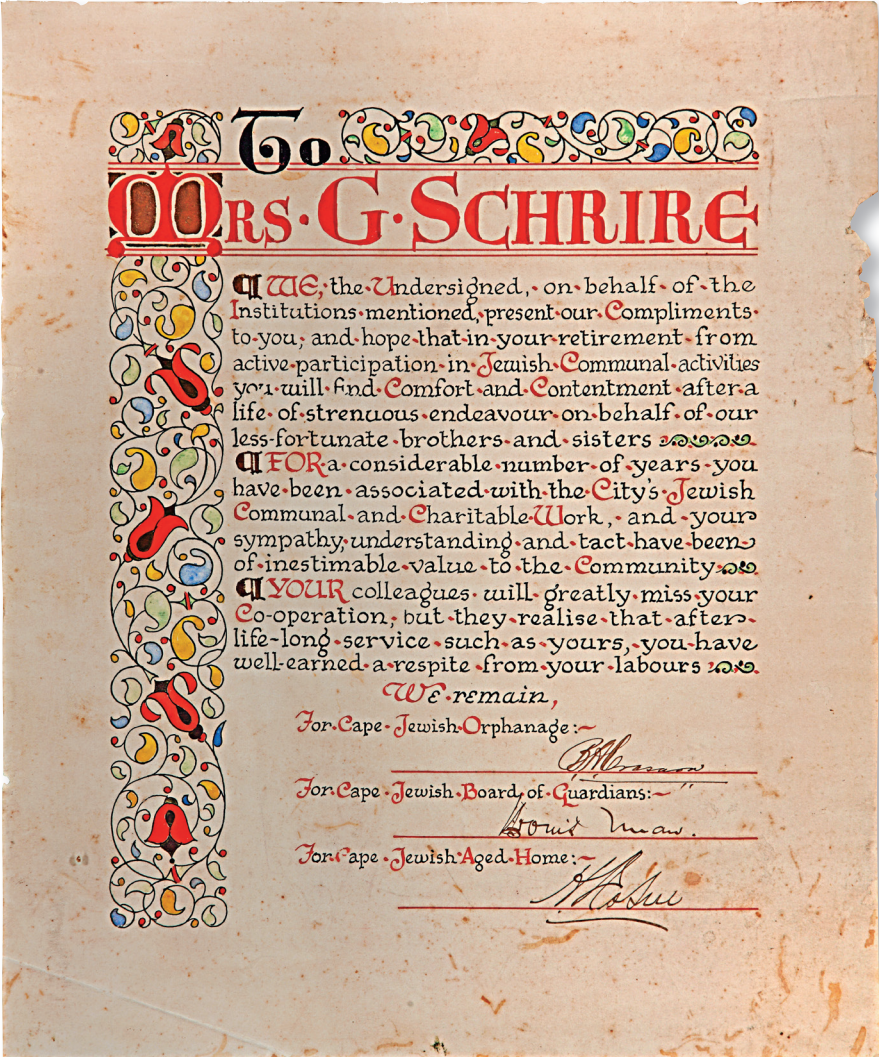 To
MRS · G · SCHRIRE
¶ WE, · the · Undersigned, · on · behalf · of · the
Institutions · mentioned, present · our · Compliments ·
to · you; and · hope · that · in · your · retirement · from
active · participation · in · Jewish · Communal · activities
you · will · find · Comfort · and · Contentment · after · a
life · of · strenuous · endeavour · on · behalf · of · our
less-fortunate · brothers · and · sisters
¶ FOR · a · considerable · number · of · years · you
have · been · associated · with · the · City's · Jewish
Communal · and · Charitable · Work, · and · your
sympathy, · understanding · and · tact · have · been
of · inestimable · value · to · the · Community
¶ YOUR colleagues · will · greatly · miss · your
Co-operation, · but · they · realise · that · after ·
life-long · service · such · as · yours, · you · have
well-earned · a · respite · from · your · labours
We · remain,
For · Cape · Jewish · Orphanage:~
For · Cape · Jewish · Board · of · Guardians:~
Louis
For · Cape · Jewish · Aged · Home:~